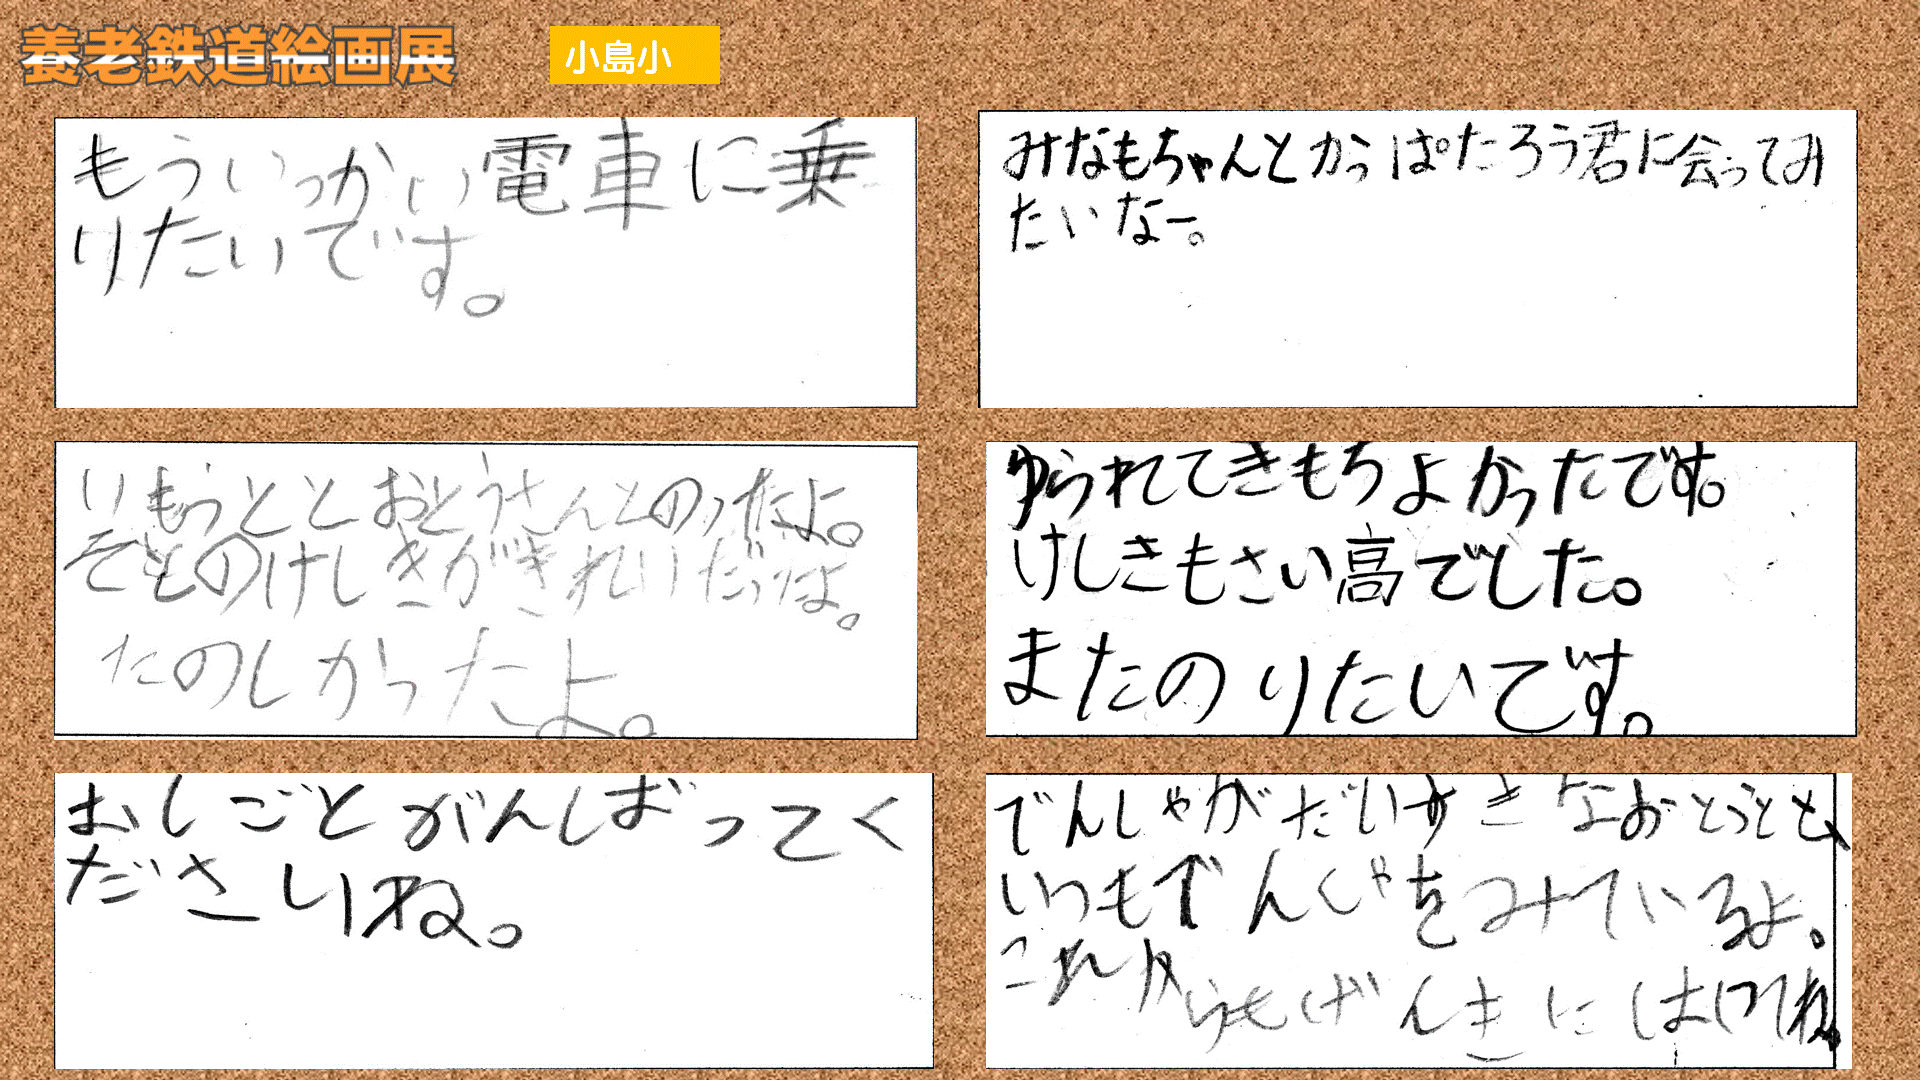 養老鉄道絵画展
小島小
もういっかい電車に乗
りたいです。
みなもちゃんとかっぱたろう君に会ってみ
たいなー。
いもうととおとうさんとのったよ。
そとのけしきがきれいだったよ。
たのしかったよ。
ゆられてきもちよかったです。
けしきもさい高でした。
またのりたいです。
おしごとがんしばってく
ださいね。
でんしゃがだいすきなおとうとと、
いつもでんしゃをみているよ。
これからもげんきにはしってね。